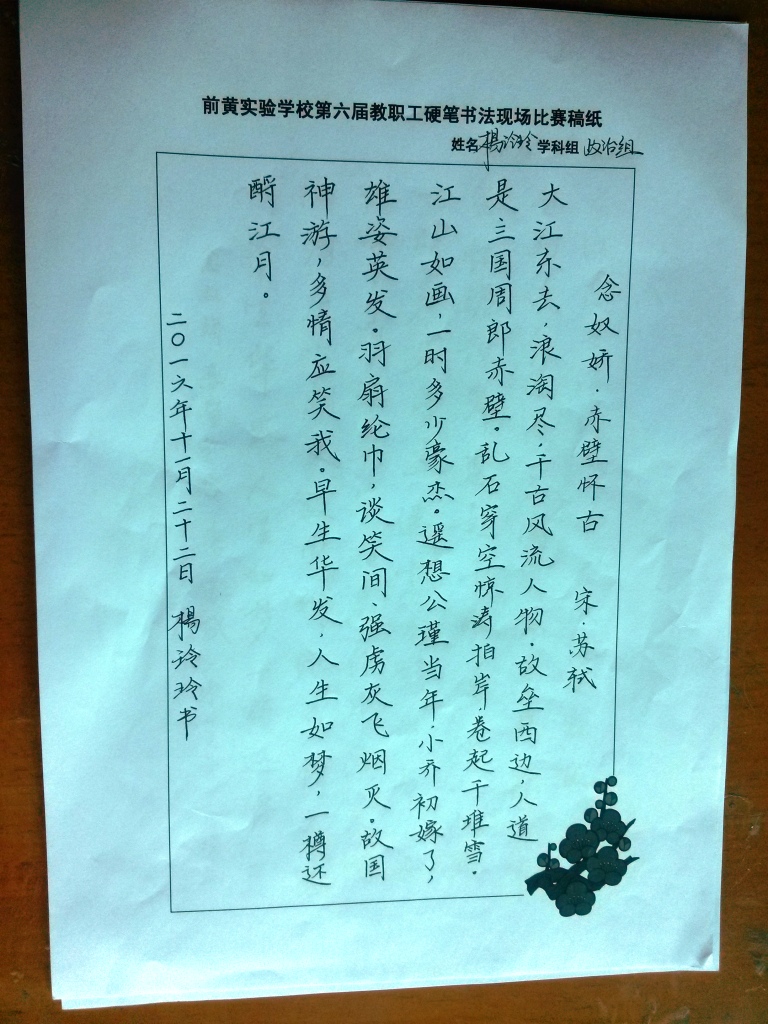 前黄实验学校第六届教职工硬笔书法现场比赛稿纸
姓名杨泠玲学科组政治组
念奴娇·赤壁怀古 宋·苏轼
大江东去，浪淘尽，千古风流人物。故垒西边，人道
是三国周郎赤壁。乱石穿空，惊涛拍岸，卷起千堆雪。
江山如画，一时多少豪杰。遥想公瑾当年，小乔初嫁了，
雄姿英发。羽扇纶巾，谈笑间、强虏灰飞烟灭。故国
神游，多情应笑我。早生华发，人生如梦，一樽还
酹江月。
二〇一六年十一月二十二日 楊泠玲书